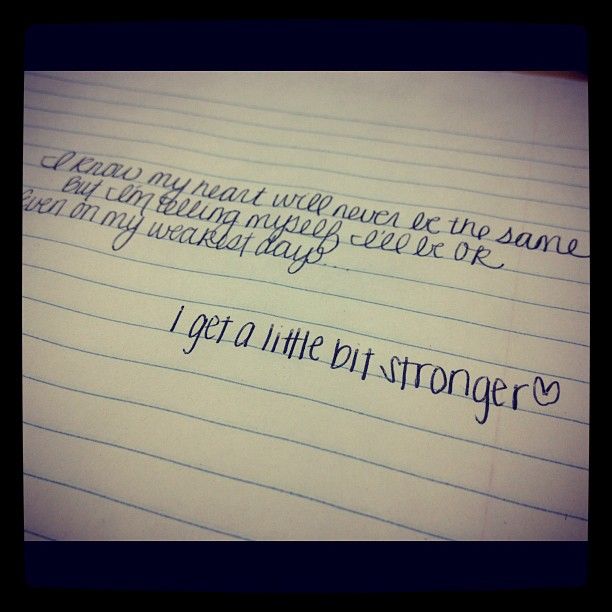 I know my heart will never be the same
But I'm telling myself I'll be OK
Even on my weakest days...
i get a little bit stronger♡